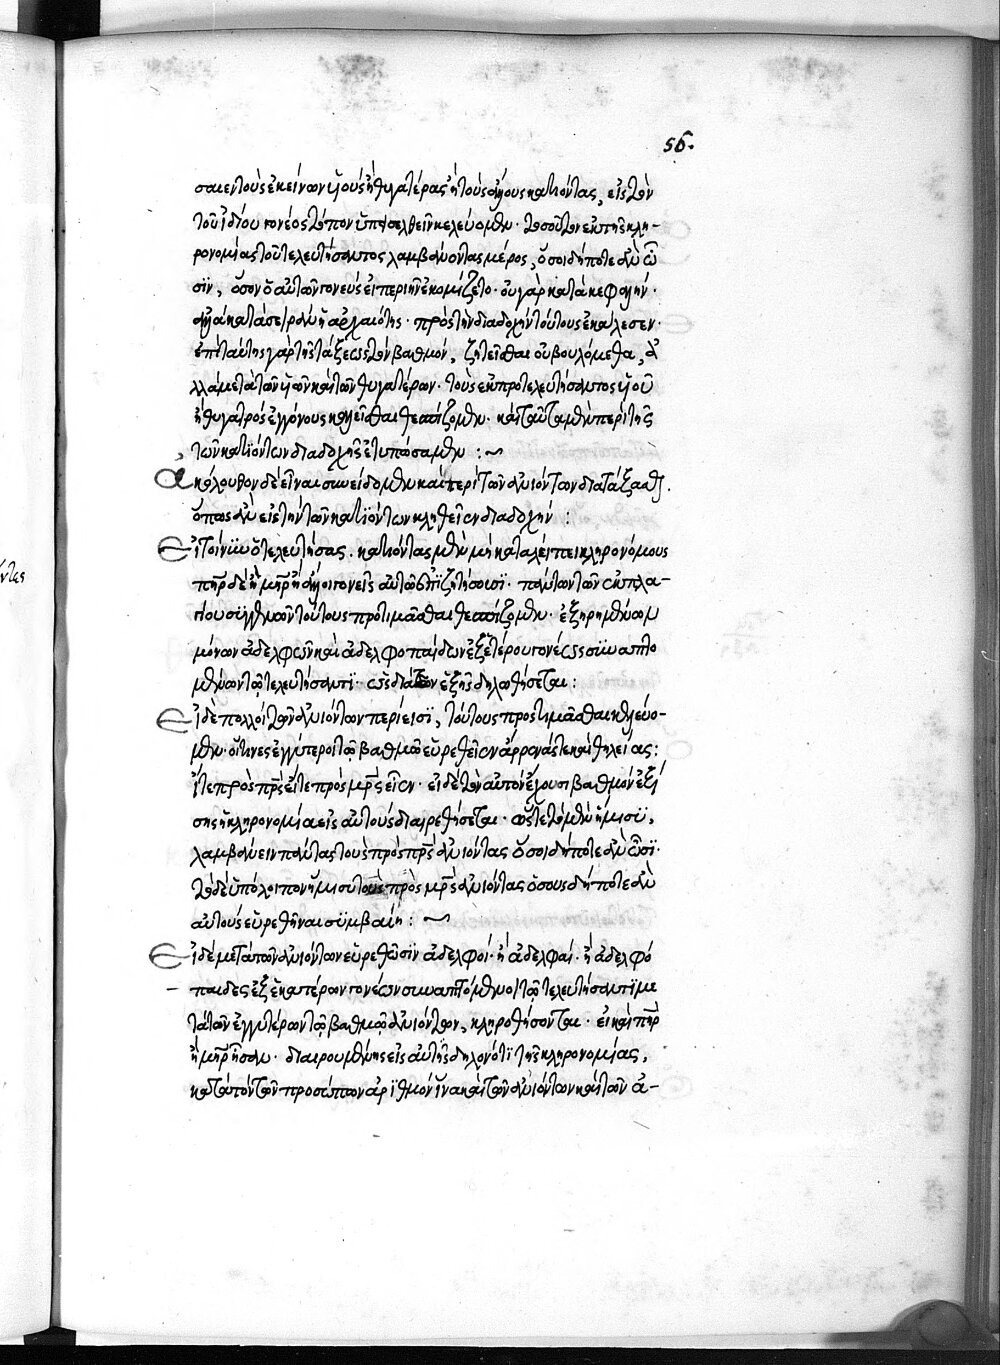 56.
σαι ἐν τοὺς ἐκείνων υἱοὺς ἢ θυγατέρας ἢ τοὺς ἄλλους κατιόντας, εἰς τὸν
τοῦ ἰδίου γονέος τόπον ὑπεισελθεῖν κελεύομεν· τοσοῦτον ἐκ τῆς κλη-
ρονομίας τοῦ τελευτήσαντος λαμβάνοντας μέρος, ὅσοι δήποτε ἂν ὦ
σϊν, ὅσον ὁ αὐτῶν γονεὺς εἰ περιῆν ἐκομίζετο· οὐ γὰρ κατὰ κεφαλήν·
ἀλλὰ κατὰ σειρὰν ἡ ἀρχαιότης· πρὸς τὴν διαδοχὴν τούτους ἐκάλεσεν·
ἐπὶ ταύτης γὰρ τῆς τάξεως τὸν βαθμόν, ζητεῖσθαι οὐ βουλόμεθα, ἀ
λλὰ μετὰ τῶν υἱῶν καὶ τῶν θυγατέρων· τοὺς ἐκ προτελευτήσαντος υἱοῦ
ἢ θυγατρὸς ἐγγόνους καλεῖσθαι θεσπίζομεν· καὶ ταῦτα μὲν περὶ τῆς
τῶν κατϊόντων διαδοχῆς ἐτυπώσαμεν :~
ἀκόλουθον δὲ εἶναι συνείδομεν καὶ περὶ τῶν ἀνιόντων διατάξασθαι.
ὅπως ἂν εἰς τὴν τῶν κατϊόντων κληθεῖεν διαδοχήν :
Εἰ τοίνυν ὁ τελευτήσας. κατιόντας μὲν μὴ καταλείπει κληρονόμους
πηρ δὲ ἢ μηρ ἢ ἄλλοι γονεῖς αὐτῶ ἐπϊζητήσωσι. πάντων τῶν ἐκ πλα-
γίου συγγενῶν τούτους προτιμᾶσθαι θεσπίζομεν· ἐξηρημένων
μόνων ἀδελφῶν καὶ ἀδελφοπαίδων ἐξ ἑτέρου γονέως συναπτο
μένων τῷ τελευτήσαντϊ· ὡς διὰ τῶν ἑξῆς δηλωθήσεται :
Εἰ δὲ πολλοὶ τῶν ἀνιόντων περίεισϊ, τούτους προτιμᾶσθαι κελεύο-
μεν. οἵτινες ἐγγύτεροι τῷ βαθμῷ εὑρεθεῖεν ἄρρενάς τε καὶ θηλείας :
εἴτε πρὸς πρς εἴτε πρὸς μρς εἶεν· εἰ δὲ τὸν αὐτὸν ἔχουσι βαθμὸν ἐξἴ
σης ἡ κληρονομία εἰς αὐτοὺς διαιρεθήσεται· ὥστε τὸ μὲν ἥμισϋ,
λαμβάνειν πάντας τοὺς πρὸς πρς ἀνιόντας ὅσοι δήποτε ἂν ὦσϊ·
τὸ δὲ ὑπόλοιπον ἥμισυ τοὺς πρὸς μρς ἀνιόντας ὅσους δήποτε ἂν
αὐτοὺς εὑρεθῆναι συμβαίη : ~
Εἰ δὲ μετὰ τῶν ἀνιόντων εὑρεθῶσϊν ἀδελφοί· ἢ ἀδελφαί· ἢ ἀδελφό
παιδες ἐξ ἑκατέρων γονέων συναπτόμενοι τῷ τελευτήσαντι με
τὰ τῶν ἐγγυτέρων τῷ βαθμῷ ἀνιόντων, κληροθήσονται· εἰ καὶ πηρ
ἢ μηρ ἦσαν· διαιρουμένης εἰς αὐτῆς δηλονότϊ τῆς κληρονομίας,
κατὰ τὸν τῶν προσώπων ἀριθμὸν ἵνα καὶ τῶν ἀνϊόντων καὶ τῶν ἀ-